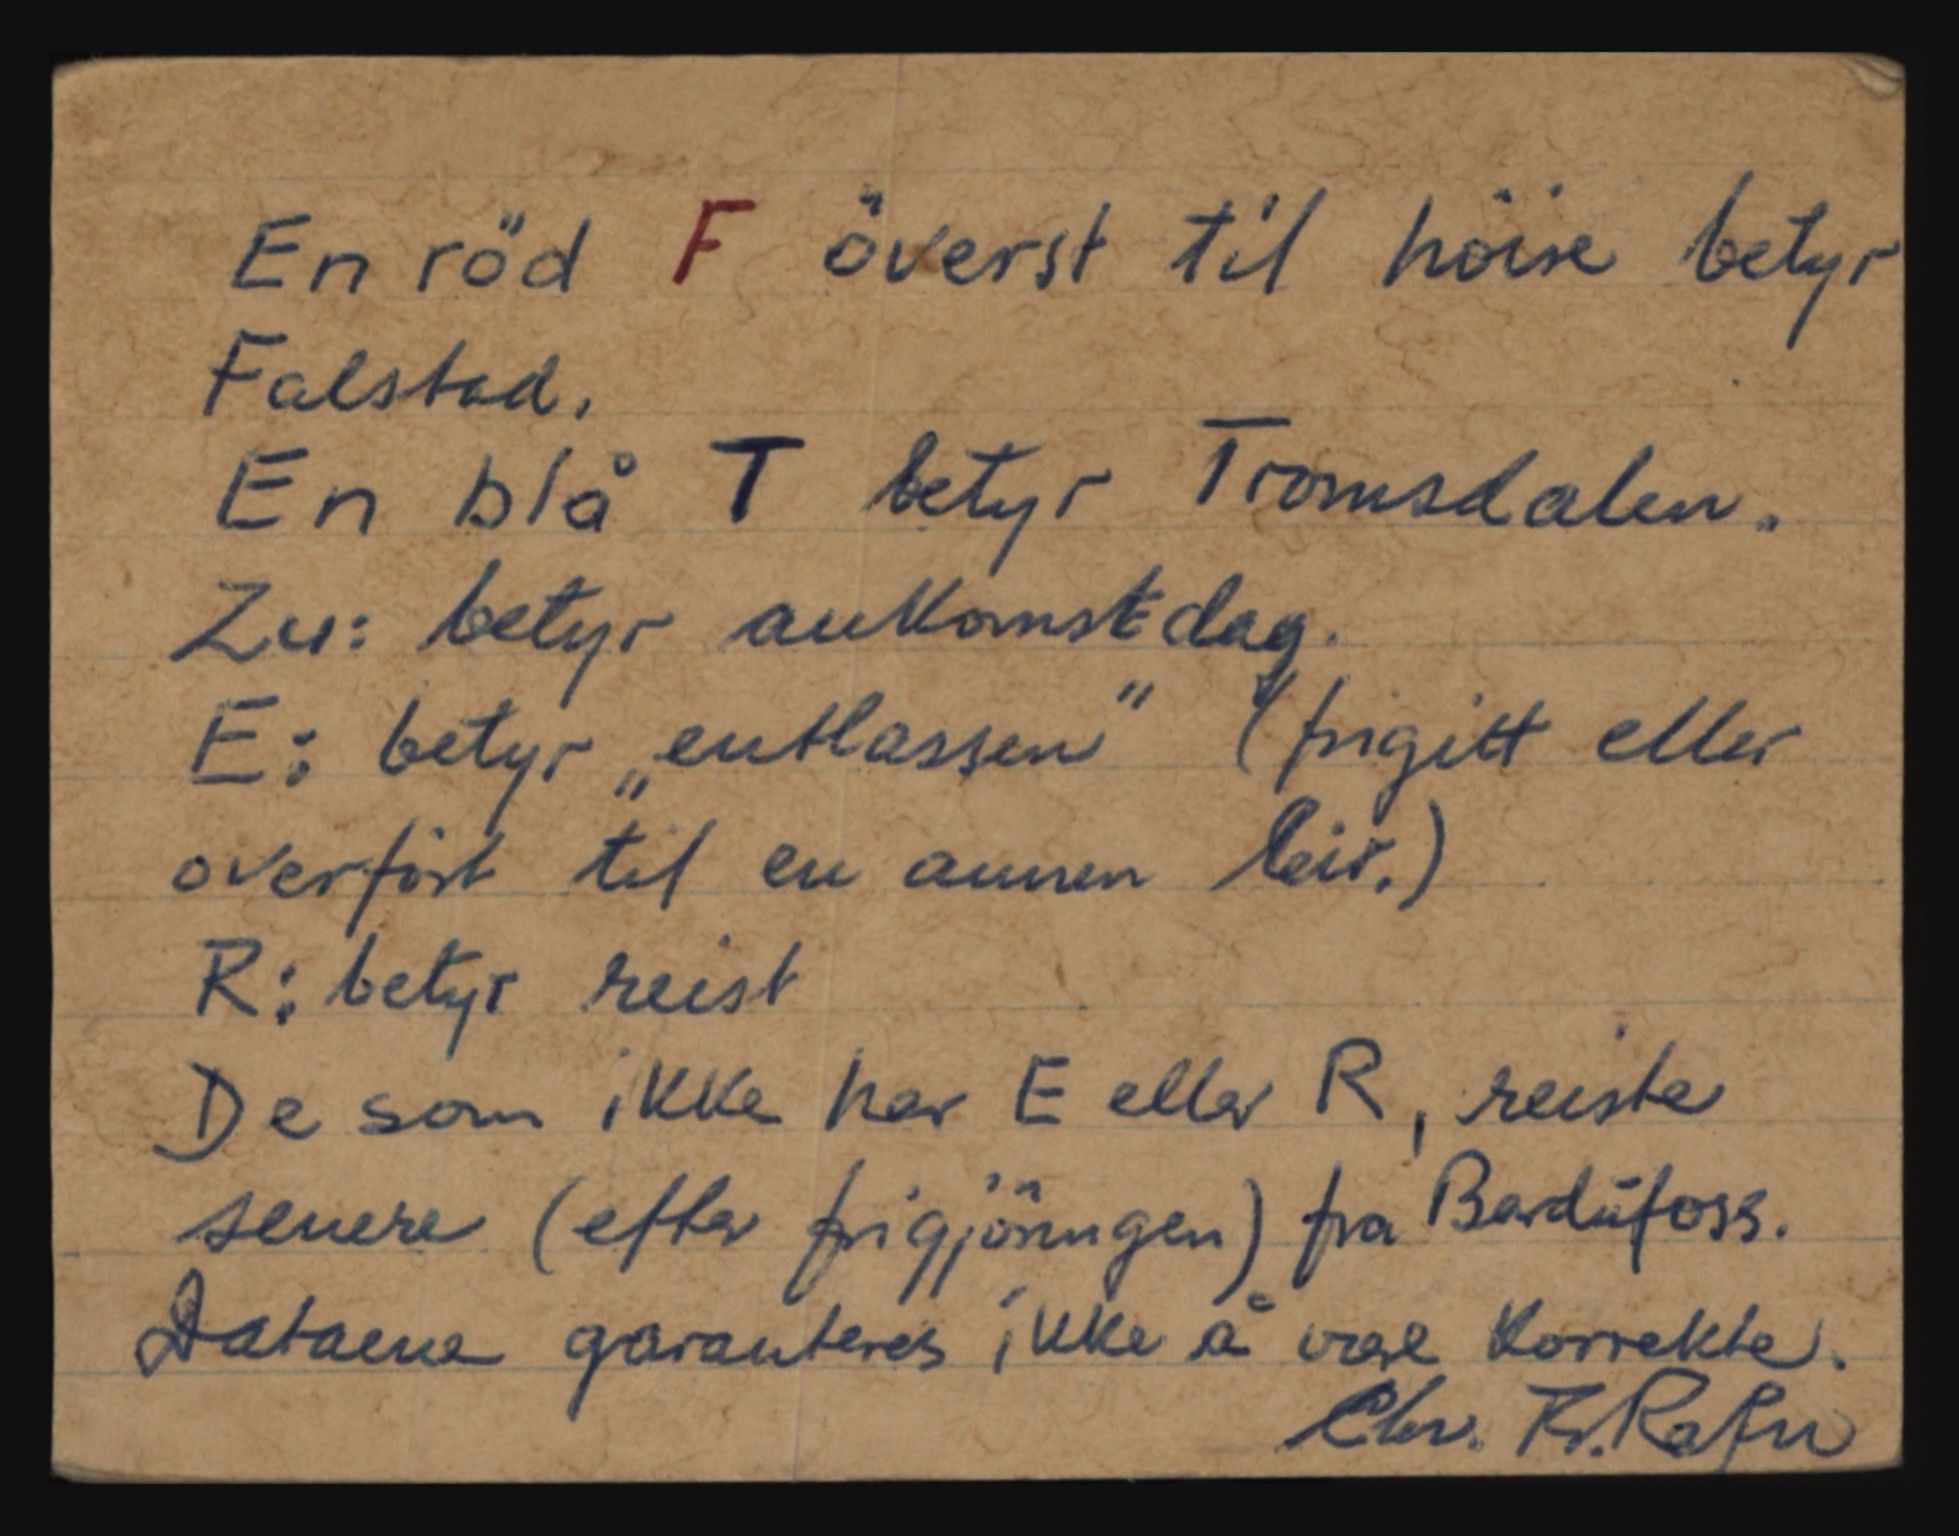 En röd F överst til höire betyr
Falstad.
En blå T betyr Tromsdalen.
Zu: betyr ankomstdag.
E: betyr „entlassen" (frigitt eller
overfört til en annen leir.)
R: betyr reist
De som ikke har E eller R, reiste
senere (efter frigjöringen) fra Bardufoss.
Dataene garanteres ikke å være korrekte.
Chr. Fr. Rafn